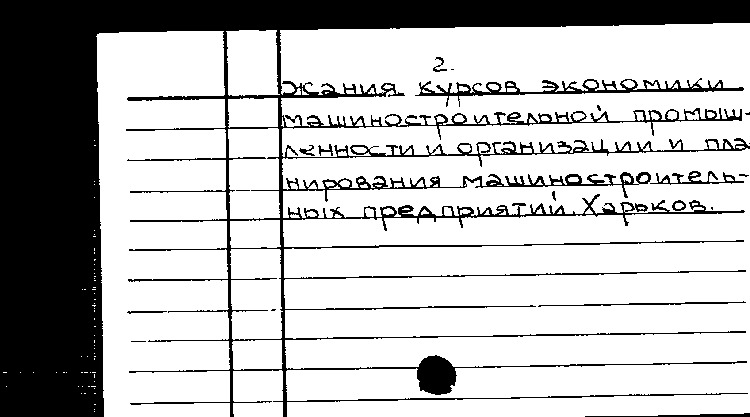 2.
жания курсов экономики
машиностроительной промыш-
ленности и организации и пла
нирования машиностроитель-
ных предприятий. Харьков.